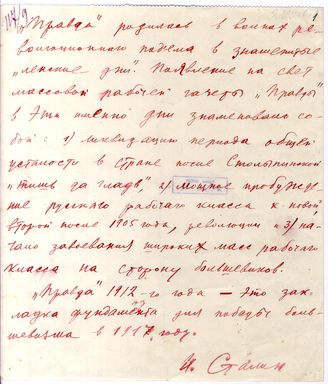 114/9
1
„Правда" родилась в волнах ре-
волюционного подъема в знаменитые
„ленские дни". Появление на свет
массовой рабочей газеты „Правды"
в эти именно дни знаменовало со-
бой: 1) ликвидацию периода общей
усталости в стране после Столыпинской
„тишь да гладь", 2) мощное пробужде-
ние русского рабочего класса к новой,
второй после 1905 года, революции и 3) на-
чало завоевания широких масс рабочего
класса на сторону большевиков.
„Правда" 1912-го года — это зак-
ладка фундамента для победы боль-
шевизма в 1917 году.
И. Сталин